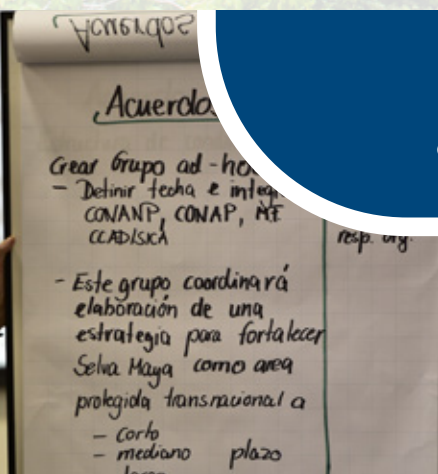 Acuerdos
Acuerdos
Crear Grupo ad-ho
- Definir fecha e integ
CONANP, CONAP, MF
CCAD/SICA
resp. org.
- Este grupo coordinará
elaboración de una
estrategia para fortalecer
Selva Maya como area
protegida transnacional a
- corto
- mediano plazo